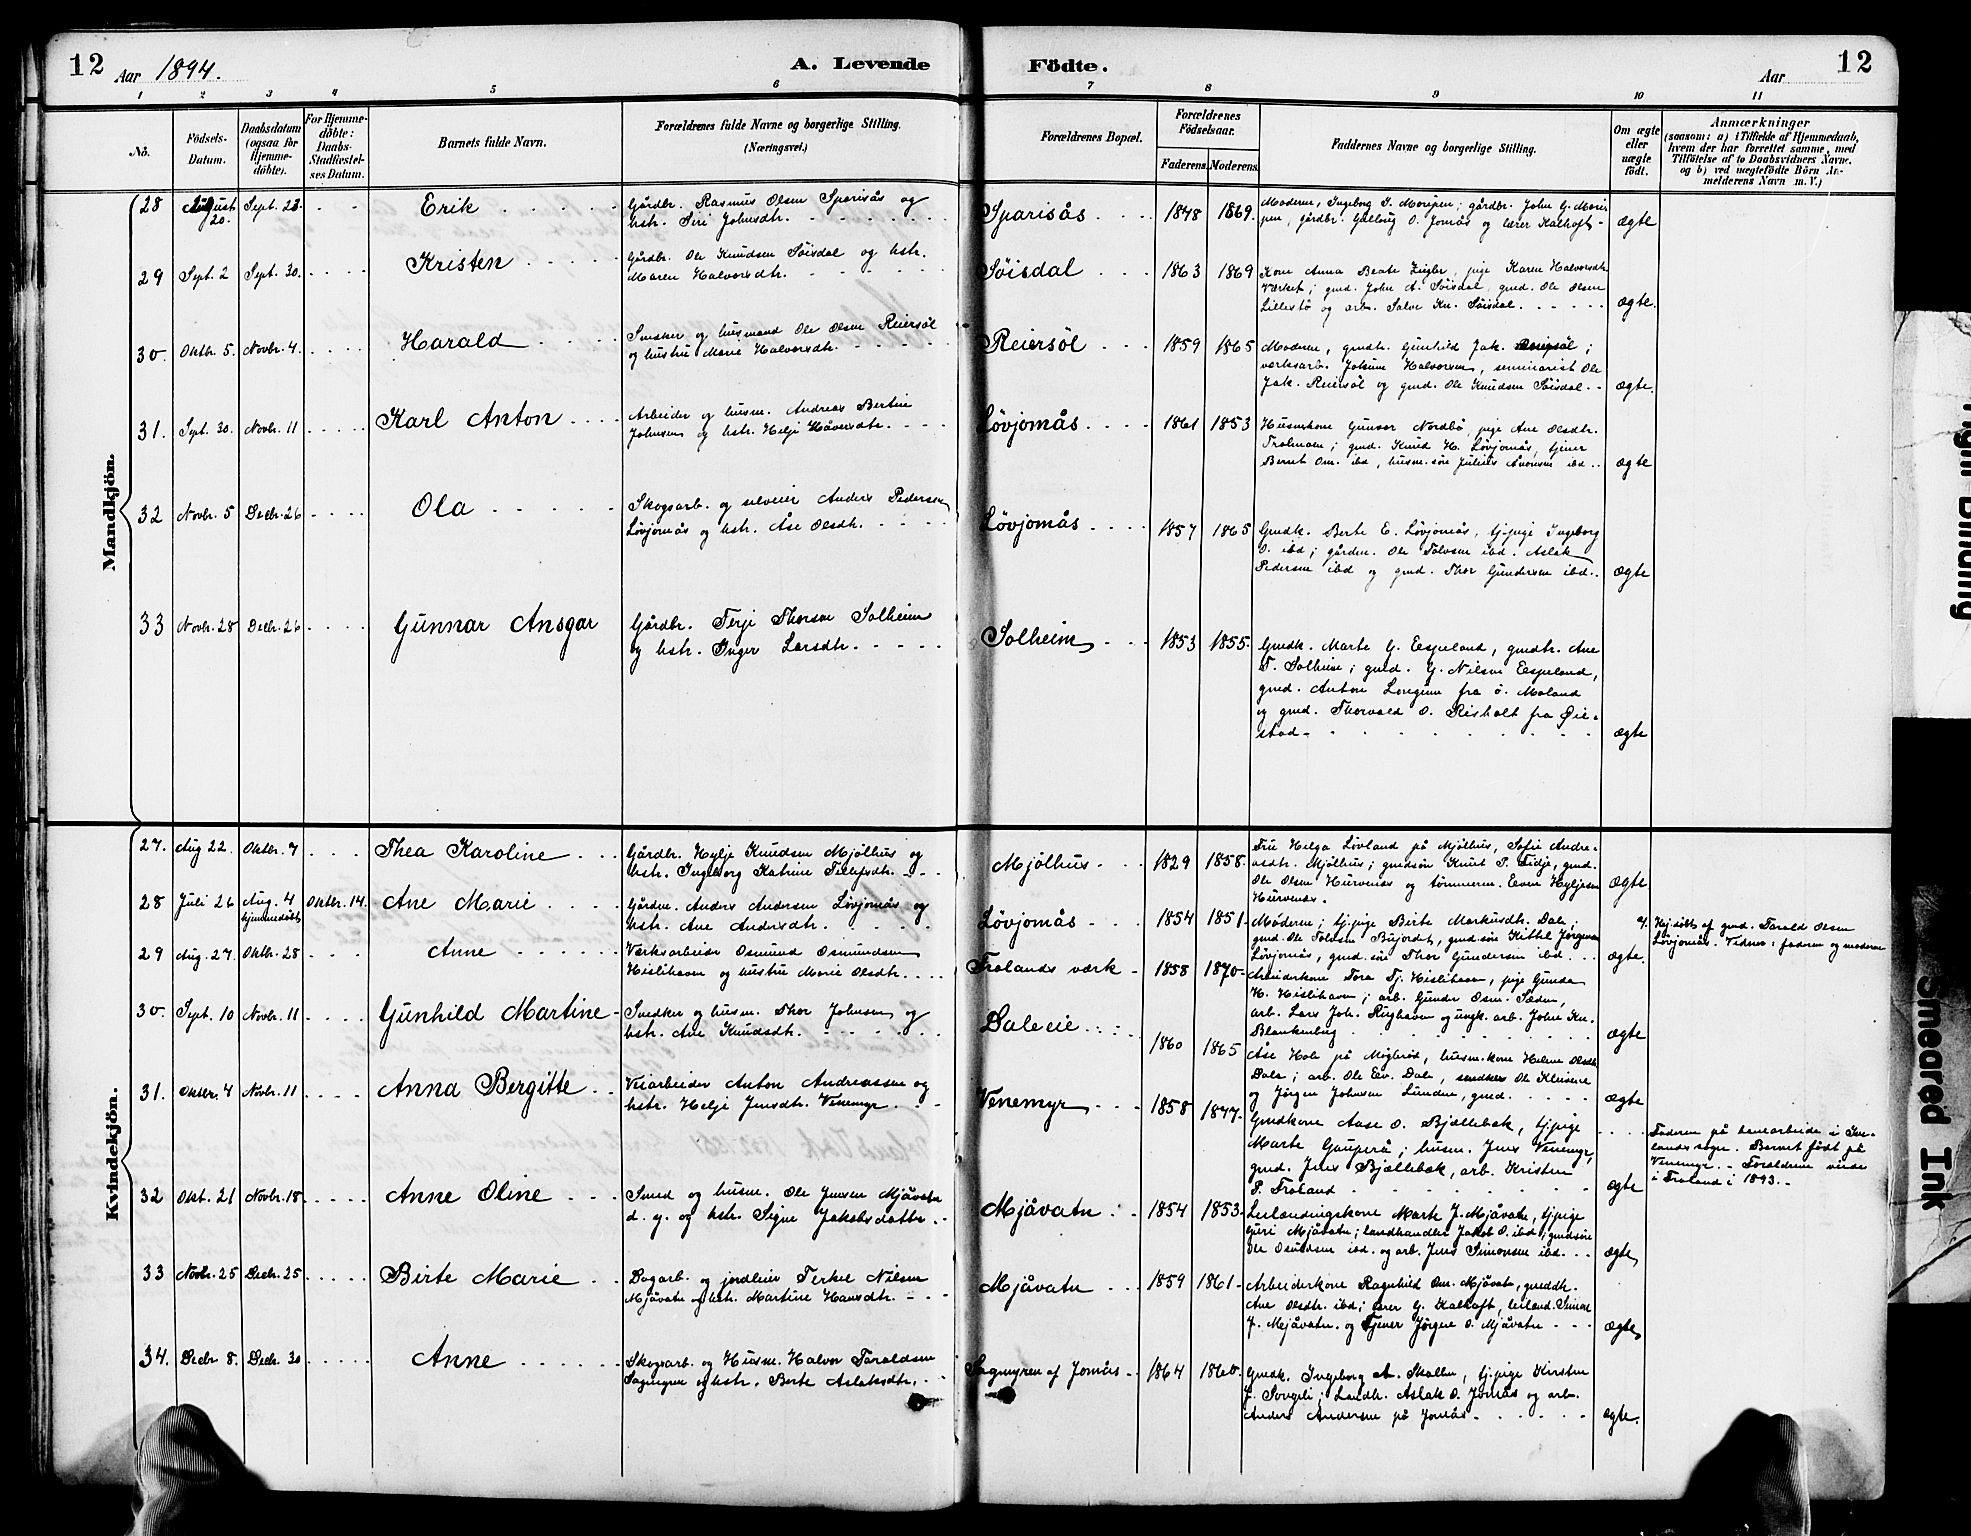 12 Aar 1894. A. Levende Födte. Aar 12
1 2 3 4 5 6 7 8 9 10 11
No.
Födsels-
Datum.
Daabsdatum
(ogsaa for
Hjemme-
döbte).
For Hjemme-
döbte:
Daabs-
Stadfæstel-
ses Datum.
Barnets fulde Navn.
Forældrenes fulde Navne og borgerlige Stilling.
(Næringsvei.)
Forældrenes Bopæl.
Forældrenes
Födselsaar.
Faderens. Moderens.
Faddernes Navne og borgerlige Stilling.
Om ægte
eller
uægte
födt.
Anmærkninger
(saasom: a) i Tilfælde af Hjemmedaab,
hvem der har forrettet samme, med
Tilföielse af to Daabsvidners Navne.
og b) ved uægtefödte Börn An-
melderens Navn m. V.)
Mandkjön.
28 August 20. Sept. 23 Erik
Gårdbr. Rasmus Olsen Sparisås og
hstr. Siri Johnsdtr.
Sparisås 1848 1869.
ægte
29 Sept. 2 Sept. 30. Kristen
Gårdbr. Ole Knudsen Söisdal og hstr.
Maren Halvorsdtr.
Söisdal 1863 1869
Kone Anna Beate Zigler, pige Karen Halvorsdtr.
Værket; gmd. John A. Söisdal, gmd. Ole Olsen
Lillestö og arb. Salve Kn. Söisdal.
ægte.
30. Oktbr. 5. Novbr. 4. Harald
Snedker og husmand Ole Olsen Reiersöl
og hustru Marie Halvorsdtr.
Reiersöl 1859 1865
Moderen, gmdtr. Gunhild Jak.
værksarb. Johann Halvorsen, seminarist Ole
Jak. Reiersöl og gmd. Ole Knudsen Söisdal.
ægte.
31. Sept. 30. Novbr. 11 Karl Anton
Arbeider og husm. Andreas Bertin
Johnsen og hstr. Helje Håversdtr.
Lövjomås 1861 1853
Husmkone Gunvor Nordbö, pige Ane Olsdtr.
Trolmoen; gmd. Knud H. Lövjomås, tjener
Bernt Om. ibd, husm. sön Julius Åvonsen ibd.
ægte
32 Novbr. 5 Decbr. 26 Ola
Skogsarb. og selveier Anders Pedersen
Lövjomås og hstr. Åse Olsdtr.
Lövjomås 1857 1865
Gmdk. Berte E. Lövjomås, tj.pige Ingeborg
O. ibd; gårdm. Ole Tolvsen ibd. Aslak
Pedersen ibd og gmd. Thor Gundersen ibd.
ægte
33 Novbr. 28 Decbr. 26 Gunnar Ansgar
Gårdbr. Terje Thorsen Solheim
og hstr. Inger Larsdtr.
Solheim 1853 1855.
Gmdk. Marte G. Espeland, gmdtr. Ane
T. Solheim; gmd. G. Nilsen Espeland,
gmd. Anton Longum fra ö. Moland
og gmd. Thorvald O. Risholt fra Öie-
stad
ægte
Kvindekjön.
27. Aug 22. Oktbr. 7 Thea Karoline
Gårdbr. Hylje Knudsen Mjölhus og
hstr. Ingeborg Katrine Tellefsdtr.
Mjölhus 1829 1858.
Fru Helga Lövland på Mjölhus, Sofie Andre-
asdtr. Mjölhus; gmdsön Knut T. Tidje, gmd.
Ole Olsen Hurvenes og tömmerm. Even Hyljesen
Hurvenes.
ægte
28 Juli 26 Aug. 4 hjemmedöbt Oktbr. 14. Ane Marie
Gårdm. Anders Andersen Lövjomås og
hstr. Ane Andersdtr.
Lövjomås 1854 1851.
Moderen; tj.pige Birte Markusdtr. Dale;
gmd. Ole Tolvsen Bujordet, gmd. sön Kittel Jörgensen
Lövjomås, gmd. sön Thor Gundersen ibd.
ægte.
Hj. döbt af gmd. Tarald Olsen
Lövjomås. Vidner: faderen og moderen
29 Aug. 27. Oktbr. 28 Anne
Værksarbeider Osmund Osmundsen
Hislihaven og hustru Marie Olsdtr.
Frolands værk 1858 1870
Arbeiderkone Tora Tj. Hislihaven, pige Gunda
H. Hislihaven; arb. Gunder Osm. Sæden,
arb. Lars Joh. Rughaven og ungk. arb. John Kn.
Blankenbug
ægte
30. Sept. 10 Novbr. 11 Gunhild Martine
Snedker og husm. Thor Johnsen og
hstr. Ane Knudsdtr.
Dale eie 1860 1865
Åse Hole på Möglerød, husm.kone Helene Olsdtr
Dale; arb. Ole Ev. Dale, snedker Ole Klevene
og Jörgen Johnsen Lunden, gmd.
ægte
31. Oktbr. 4 Novbr. 11 Anna Bergitte
Veiarbeider Anton Andreassen og
hstr. Helje Jensdtr. Venemyr
Venemyr 1858 1877.
Gmdkone Aase O. Bjællebæk, tj.pige
Marte Gauperå; husm. Jens Venemyr,
gmd. Jens Bjællebæk, arb. Kristen
P. Froland
ægte
Faderen på banearbeide i Ive-
lands sogn. Barnet födt på
Venemyr. Foreldrene viede
i Froland i 1893.
32 Okt. 21 Novbr. 18 Anne Oline
Smed og husm. Ole Jensen Mjåvatn
d. y. og hstr. Signe Jakobsdatter
Mjåvatn 1854 1853
Leilændingskone Marte J. Mjåvatn, tj.pige
Guri Mjåvatn; landhandler Jakob O. ibd; gmdsön
Ole Osuldsen ibd. og arb. Jens Simonsen ibd.
ægte
33 Novbr. 25 Decbr. 25 Birte Marie
Dagarb. og jordleier Terkel Nilsen
Mjåvatn og hstr. Martine Hansdtr.
Mjåvatn 1859 1861
Arbeiderkone Ragnhild Om. Mjåvatn, gmddtr.
Ane Olsdtr. ibd; lærer G. Kalhoft, leilænd. Simon
J. Mjåvatn. og Tjener Jörgen O. Mjåvatn
ægte
34. Decbr 8. Decbr. 30 Anne
Skogsarb. og Husm. Halvor Taraldsen
Sagmyren og hstr. Berte Aslaksdtr.
Sagmyren af Jomås 1864 1860
Gmdk. Ingeborg A. Skallen, tj.pige Kirsten
J. Sorgeli; Landh. Aslak O. Jomås og arb.
Anders Andersen på Jomås
ægte.
Tight Binding
Smeared Ink